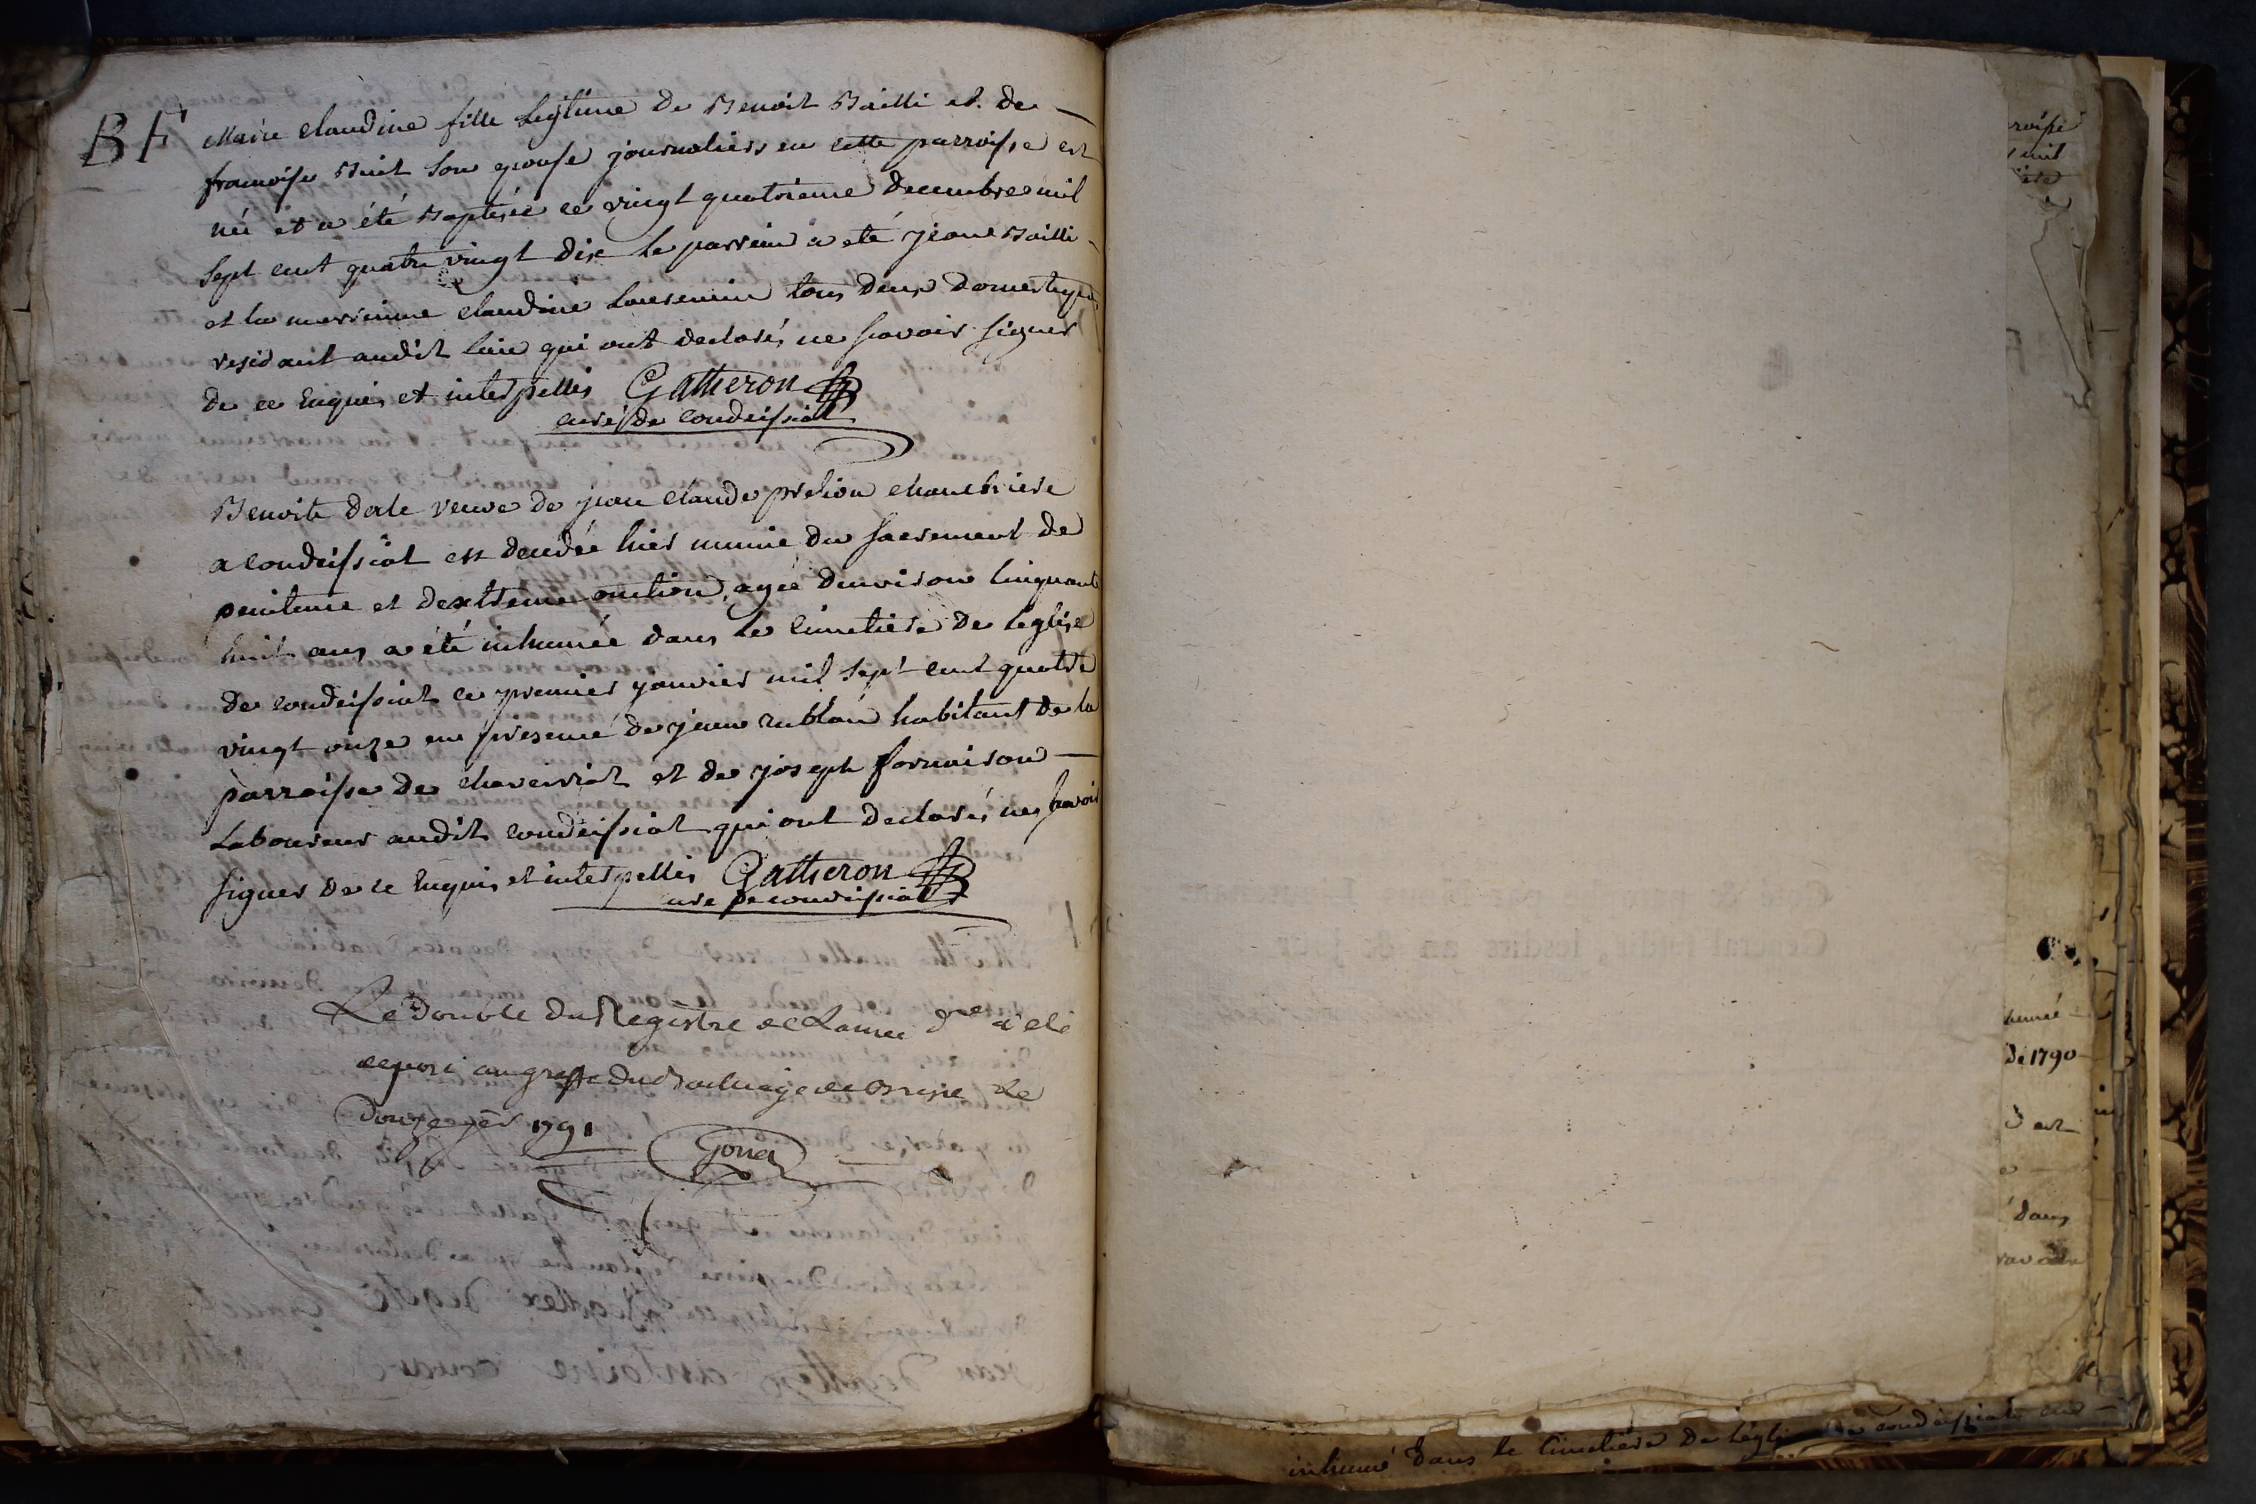 BF
Marie claudine fille legitime de Benoit Bailli et de
francoise Buit son epouse journaliers en cette parroisse est
née et a été Baptisée ce vingt quatrieme decembre mil
sept cent quatre vingt dix le parrein a été jean Bailli
et la marreinne claudine tous deux domestiques
residant audit lieu qui ont declarés ne scavoir signer
de ce enquis et interpellés Gatheron
curé de condeissiat
Benoite veuve de jean claude chambriere
a condeissiat est decedée hier munie du sacrement de
penitence et dextreme onction, agée denviron cinquante
huit ans a été inhumée dans le cimetiere de leglise
de condeissiat ce premier janvier mil sept cent quatre
vingt onze en presence de jean rublan habitant de la
parroisse de chaveiriat et de joseph fornaison
Laboureur audit condeissiat qui ont declarés ne scavoir
signer de ce enquis et interpellés Gatheron
curé de condeissiat
Le Double du Registre de Lannée dre a été
deposé au greffe du Bailliage de Bresse Le
Douze 1791
Gonet
roisse
mil
humée
de 1790
est
dans
inhumé dans le cimetiere de leglise de condeissiat en